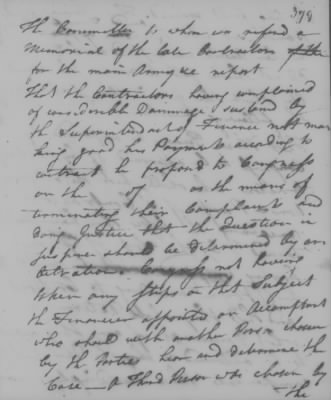 379
The Committee to whom was referd a
Memorial of the late Contractors
for the main Army &c report
That the Contractors having complained
of considerable Dammage sustaind by
the Superintendant of Finance not ma
king good his Payments according to
contract he propos'd to Congress
on the of as the means of
terminating their Complaints and
doing Justice that the Question in
suspence should be determined by an
Arbitration Congress not having
taken any Steps on that Subject
the Financier appointed an Accomptant
who should with another Person chosen
by the Parties hear and determine the
Case — A Third Person was chosen by
the